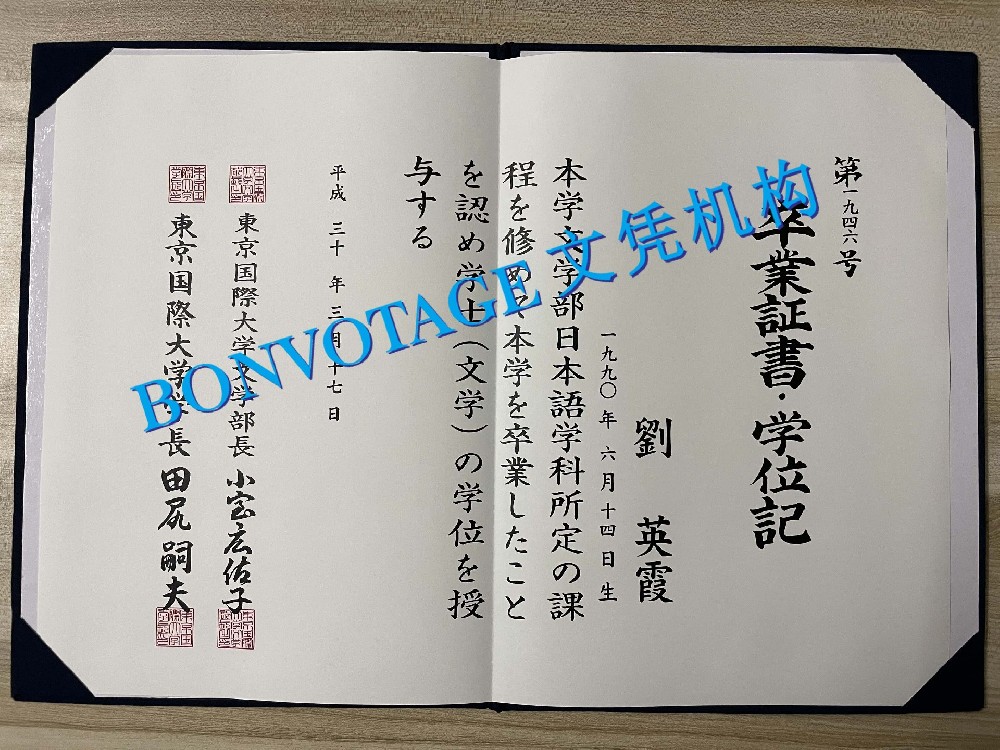 第一九四六号
卒業証書・学位記
劉 英霞
一九九〇年六月十四日生
本学文学部日本語学科所定の課
程を修めて本学を卒業したこと
を認め学士（文学）の学位を授
与する
平成三十年三月十七日
東京国際大学文学部長 小宮広佐子
東京国際大学学長 田尻嗣夫
BONVOTAGE文凭机构